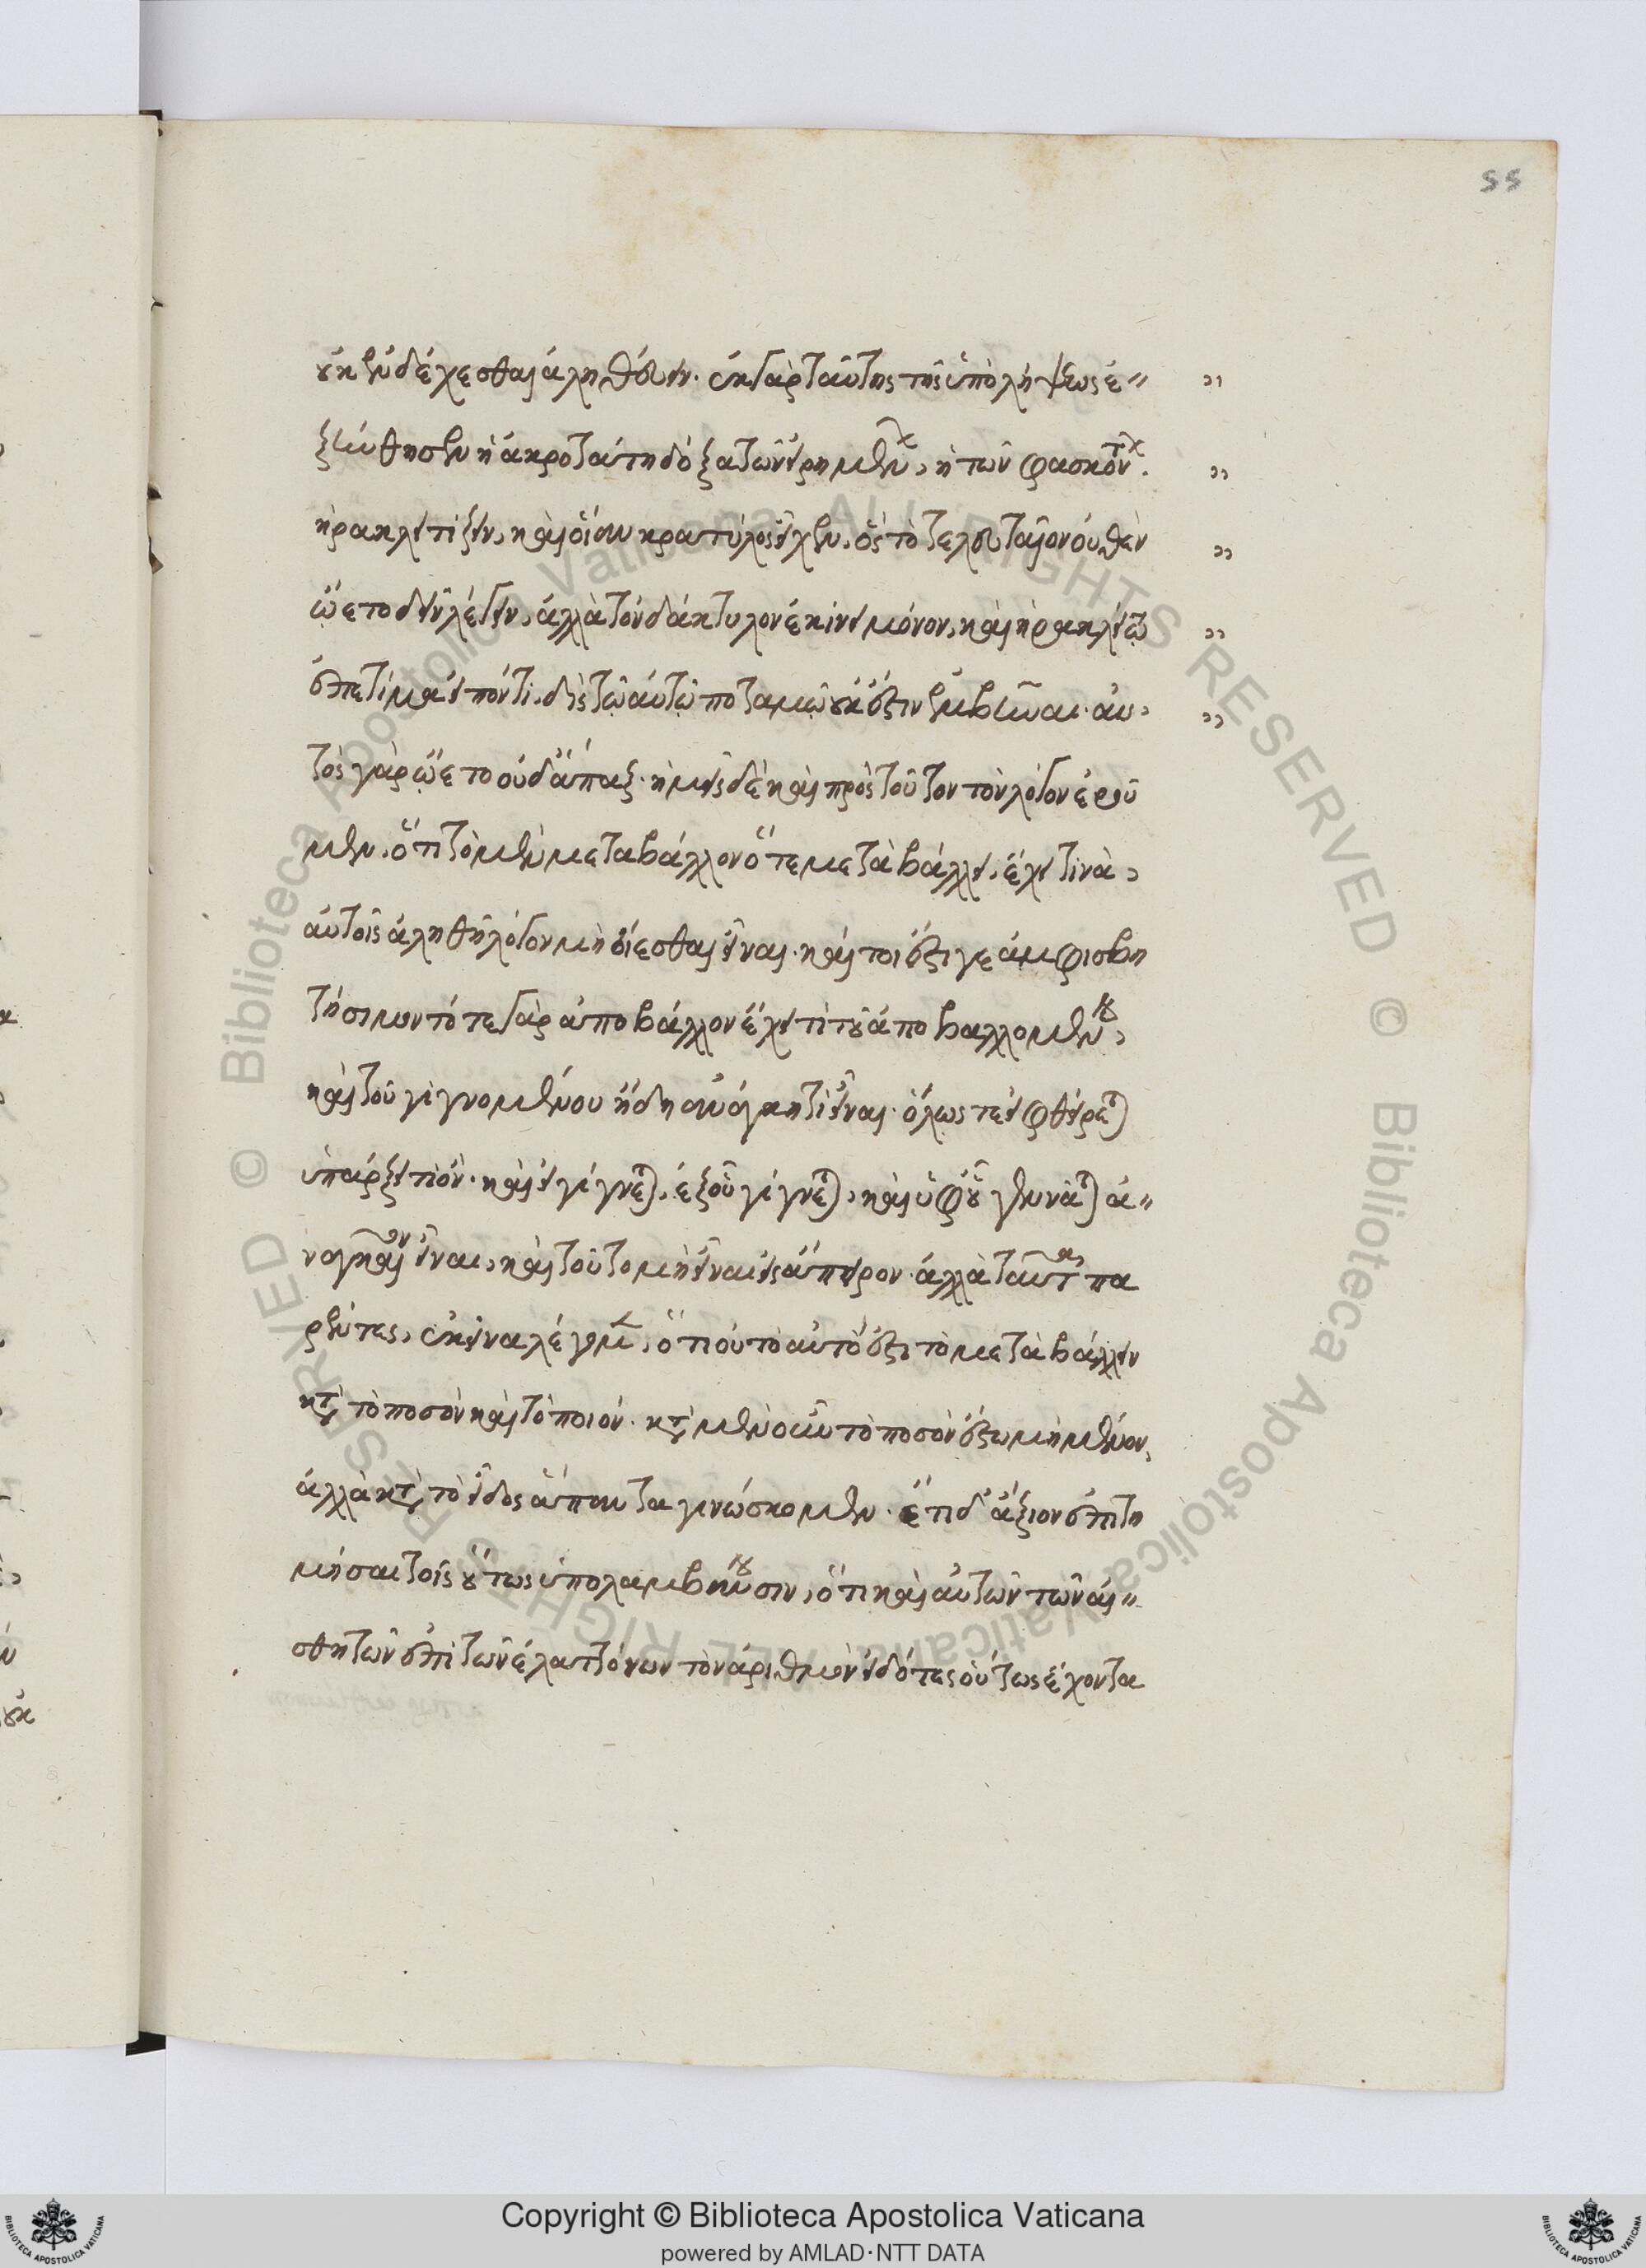 55
οὐκ ἐνδέχεσθαι ἀληθεύειν. ἐκ γὰρ ταύτης τῆς ὑπολήψεως ἐ
ξήνθησεν ἡ ἀκροτάτη δόξα τῶν εἰρημένων, ἡ τῶν φασκόντων
ἡρακλειτίζειν, καὶ οἵαν κρατύλος εἶχεν, ὃς τὸ τελευταῖον οὐθὲν
ᾤετο δεῖν λέγειν, ἀλλὰ τὸν δάκτυλον ἐκίνει μόνον, καὶ ἡρακλείτῳ
ἐπετίμα εἰπόντι. δὶς τῷ αὐτῷ ποταμῷ οὐκ ἔστιν ἐμβῆναι. αὐ
τὸς γὰρ ᾤετο οὐδ' ἅπαξ. ἡμεῖς δὲ καὶ πρὸς τοῦτον τὸν λόγον ἐροῦ
μεν, ὅτι τὸ μὲν μεταβάλλον ὅτε μεταβάλλει, ἔχει τινὰ
αὐτοῖς ἀληθῆ λόγον μὴ οἴεσθαι εἶναι. καίτοι ἔστι γε ἀμφισβη
τήσιμον τό τε γὰρ ἀποβάλλον ἔχει τι τοῦ ἀποβαλλομένου,
καὶ τοῦ γιγνομένου ἤδη ἀνάγκη τι εἶναι. ὅλως τε εἰ φθείρεται
ὑπάρξει τι ὄν. καὶ εἰ γίγνεται, ἐξ οὗ γίγνεται, καὶ ὑφ' οὗ γεννᾶται ἀ
ναγκαῖον εἶναι, καὶ τοῦτο μὴ εἶναι εἰς ἄπειρον. ἀλλὰ ταῦτα πα
ρέντες, ἐκεῖνα λέγωμεν, ὅτι οὐ τὸ αὐτό ἐστι τὸ μεταβάλλειν
κατὰ τὸ ποσὸν καὶ τὸ ποιόν. κατὰ μὲν οὖν τὸ ποσὸν ἔστω μὴ μένον,
ἀλλὰ κατὰ τὸ εἶδος ἅπαντα γινώσκομεν. ἔτι δ' ἄξιον ἐπιτι
μῆσαι τοῖς οὕτως ὑπολαμβάνουσιν, ὅτι καὶ αὐτῶν τῶν αἰ
σθητῶν ἐπὶ τῶν ἐλαττόνων τὸν ἀριθμὸν εἰδότες οὕτως ἔχοντα
Copyright © Biblioteca Apostolica Vaticana
powered by AMLAD·NTT DATA